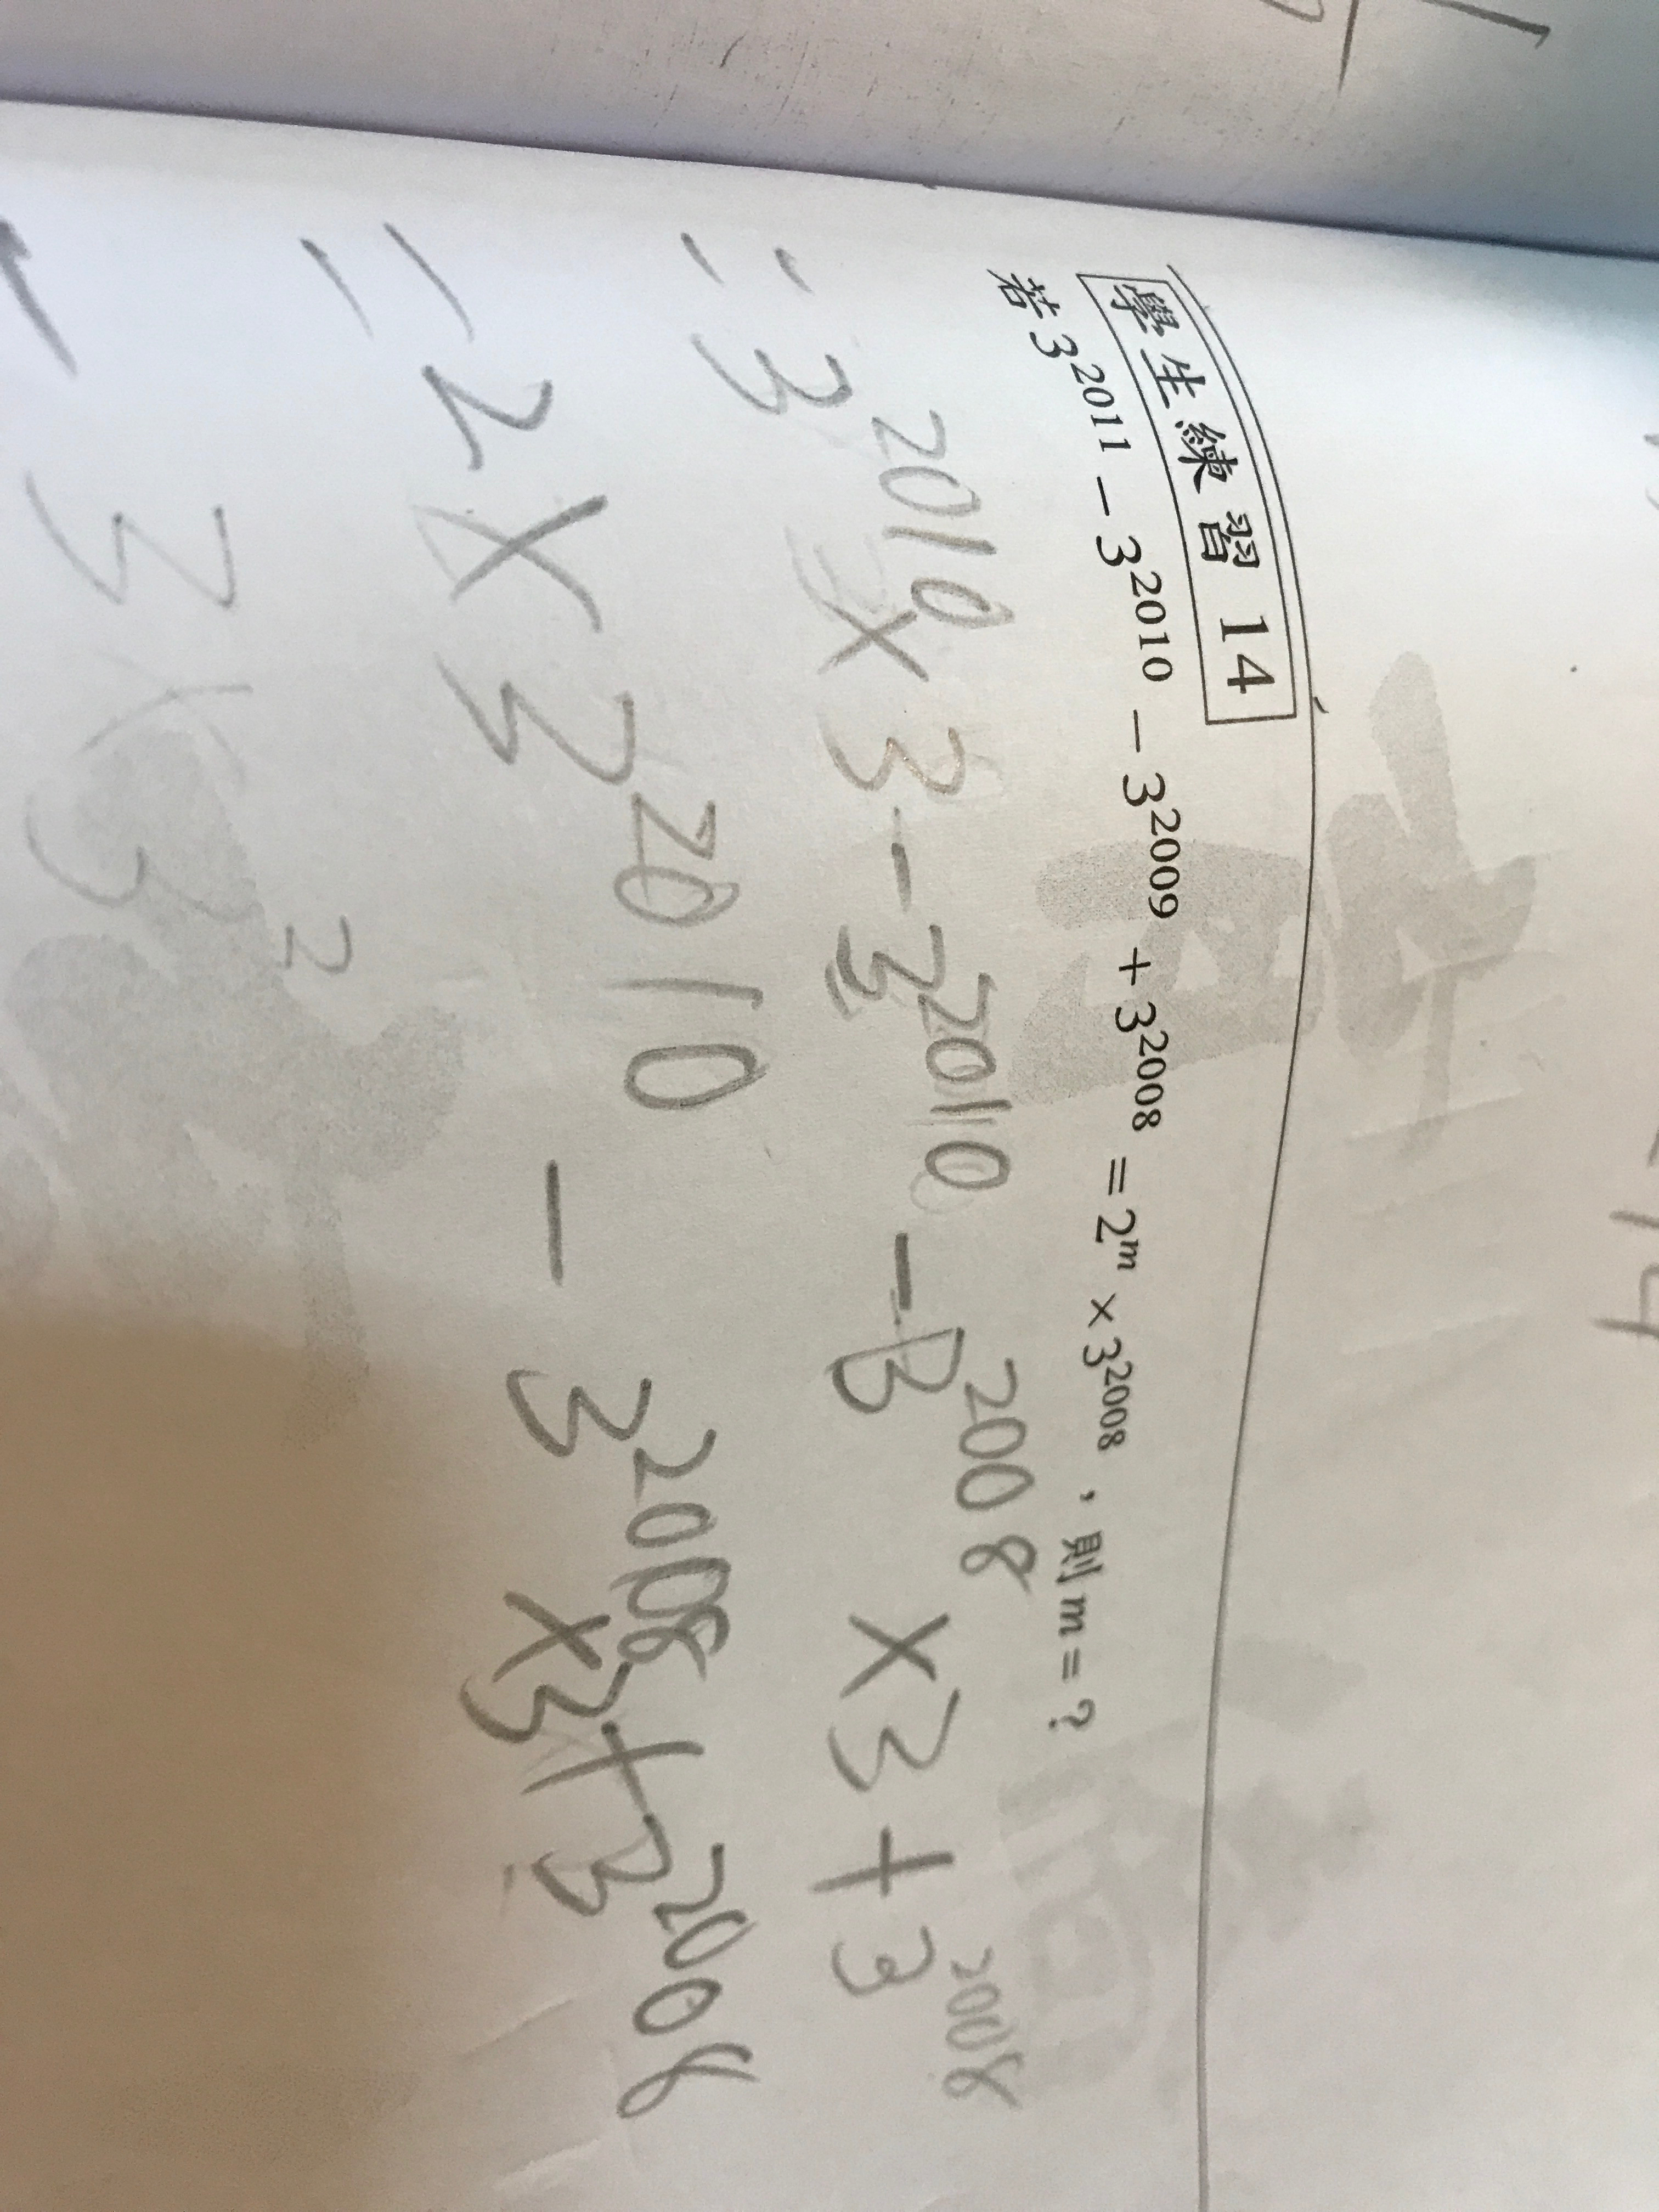 14
學生練習 14
若 3²⁰¹¹ − 3²⁰¹⁰ − 3²⁰⁰⁹ + 3²⁰⁰⁸ = 2ᵐ × 3²⁰⁰⁸，則 m = ?
= 3²⁰¹⁰ × 3 − 3²⁰¹⁰ − 3²⁰⁰⁸ × 3 + 3²⁰⁰⁸
= 2 × 3²⁰¹⁰ − 3²⁰⁰⁸ × 3 + 3²⁰⁰⁸
3 × 3²